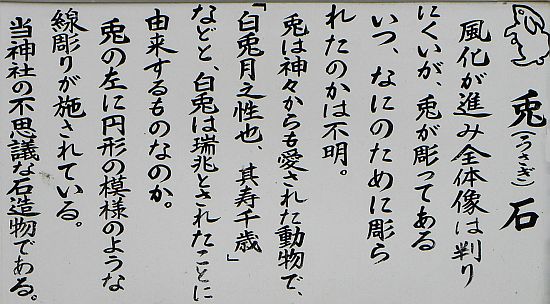 兎(うさぎ)石
風化が進み全体像は判り
にくいが、兎が彫ってある
いつ、なにのために彫ら
れたのかは不明。
兎は神々からも愛された動物で、
「白兎月之性也、其寿千歳」
などと、白兎は瑞兆とされたことに
由来するものなのか。
兎の左に円形の模様のような
線彫りが施されている。
当神社の不思議な石造物である。